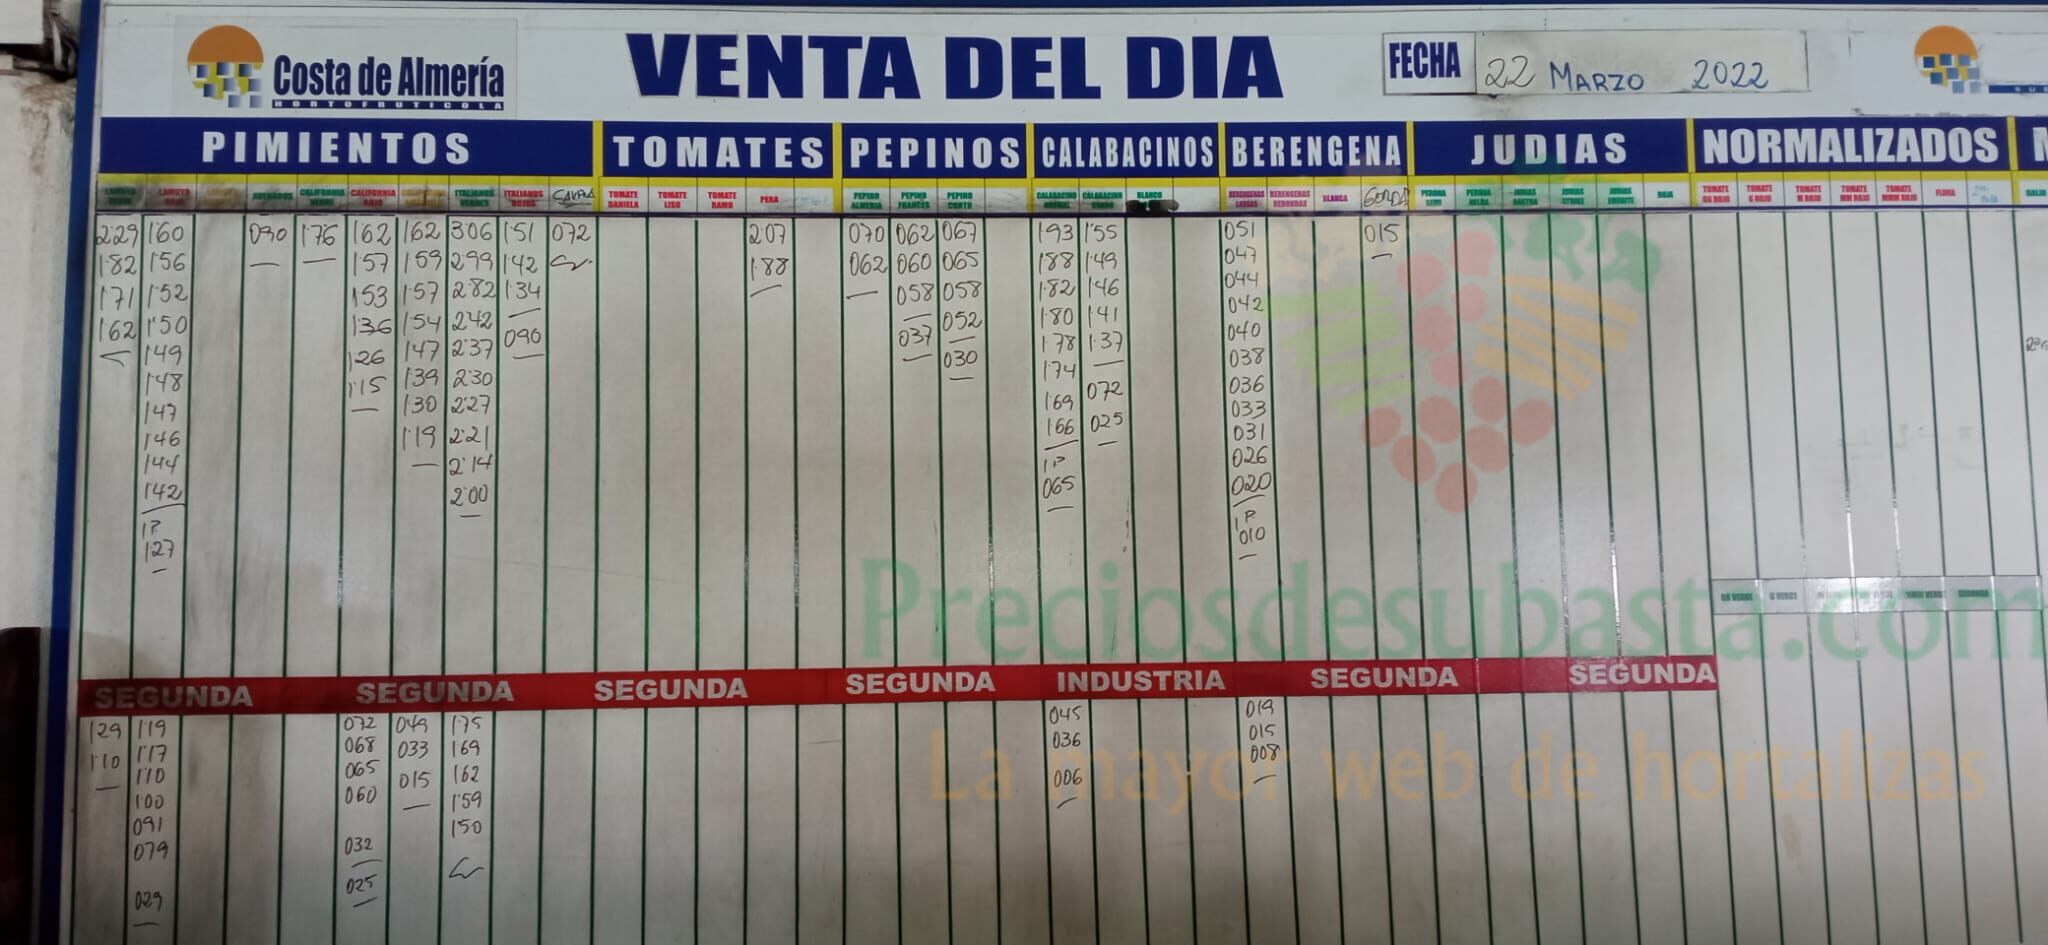 Costa de Almería
HORTOFRUTICOLA
VENTA DEL DIA
FECHA 22 MARZO 2022
PIMIENTOS TOMATES PEPINOS CALABACINOS BERENGENA JUDIAS NORMALIZADOS
LAMUYO LAMUYO ROJO CALIFORNIA VERDE CALIFORNIA ROJO ITALIANOS VERDES ITALIANOS ROJOS TOMATE DANIELA TOMATE LISO TOMATE RAMO PERA PEPINO ALMERIA PEPINO FRANCES PEPINO CORTO CALABACINO CALABACINO BLANCO BERENGENAS BERENGENAS REDONDAS BLANCA GORDA PERONA PERONA JUDIAS JUDIAS STRIKE JUDIAS ROJA TOMATE GG ROJO TOMATE G ROJO TOMATE M ROJO TOMATE MM ROJO TOMATE MMM ROJO FLORA
2'29 1'60 090 1'76 1'62 1'62 3'06 1'51 072 2'07 070 062 067 1'93 1'55 051 015
1'82 1'56 1'57 1'59 2'99 1'42 1'88 062 060 065 1'88 1'49 047
1'71 1'52 1'53 1'57 2'82 1'34 058 058 1'82 1'46 044
1'62 1'50 1'36 1'54 2'42 090 037 052 1'80 1'41 042
1'49 1'26 1'47 2'37 030 1'78 1'37 040
1'48 1'15 1'39 2'30 1'74 072 038
1'47 1'30 2'27 1'69 025 036
1'46 1'19 2'21 1'66 033
1'44 2'14 1P 031
1'42 2'00 065 026
1P 020
1'27 1P
010
Preciosdesubasta.com
GG VERDE G VERDE MMM VERDE SEGUNDA
SEGUNDA SEGUNDA SEGUNDA SEGUNDA INDUSTRIA SEGUNDA SEGUNDA
1'29 1'19 072 049 1'75 045 019
1'10 1'17 068 033 1'69 036 015
1'10 065 015 1'62 006 008
1'00 060 1'59
091 032 1'50
079 025
029
La mayor web de hortalizas